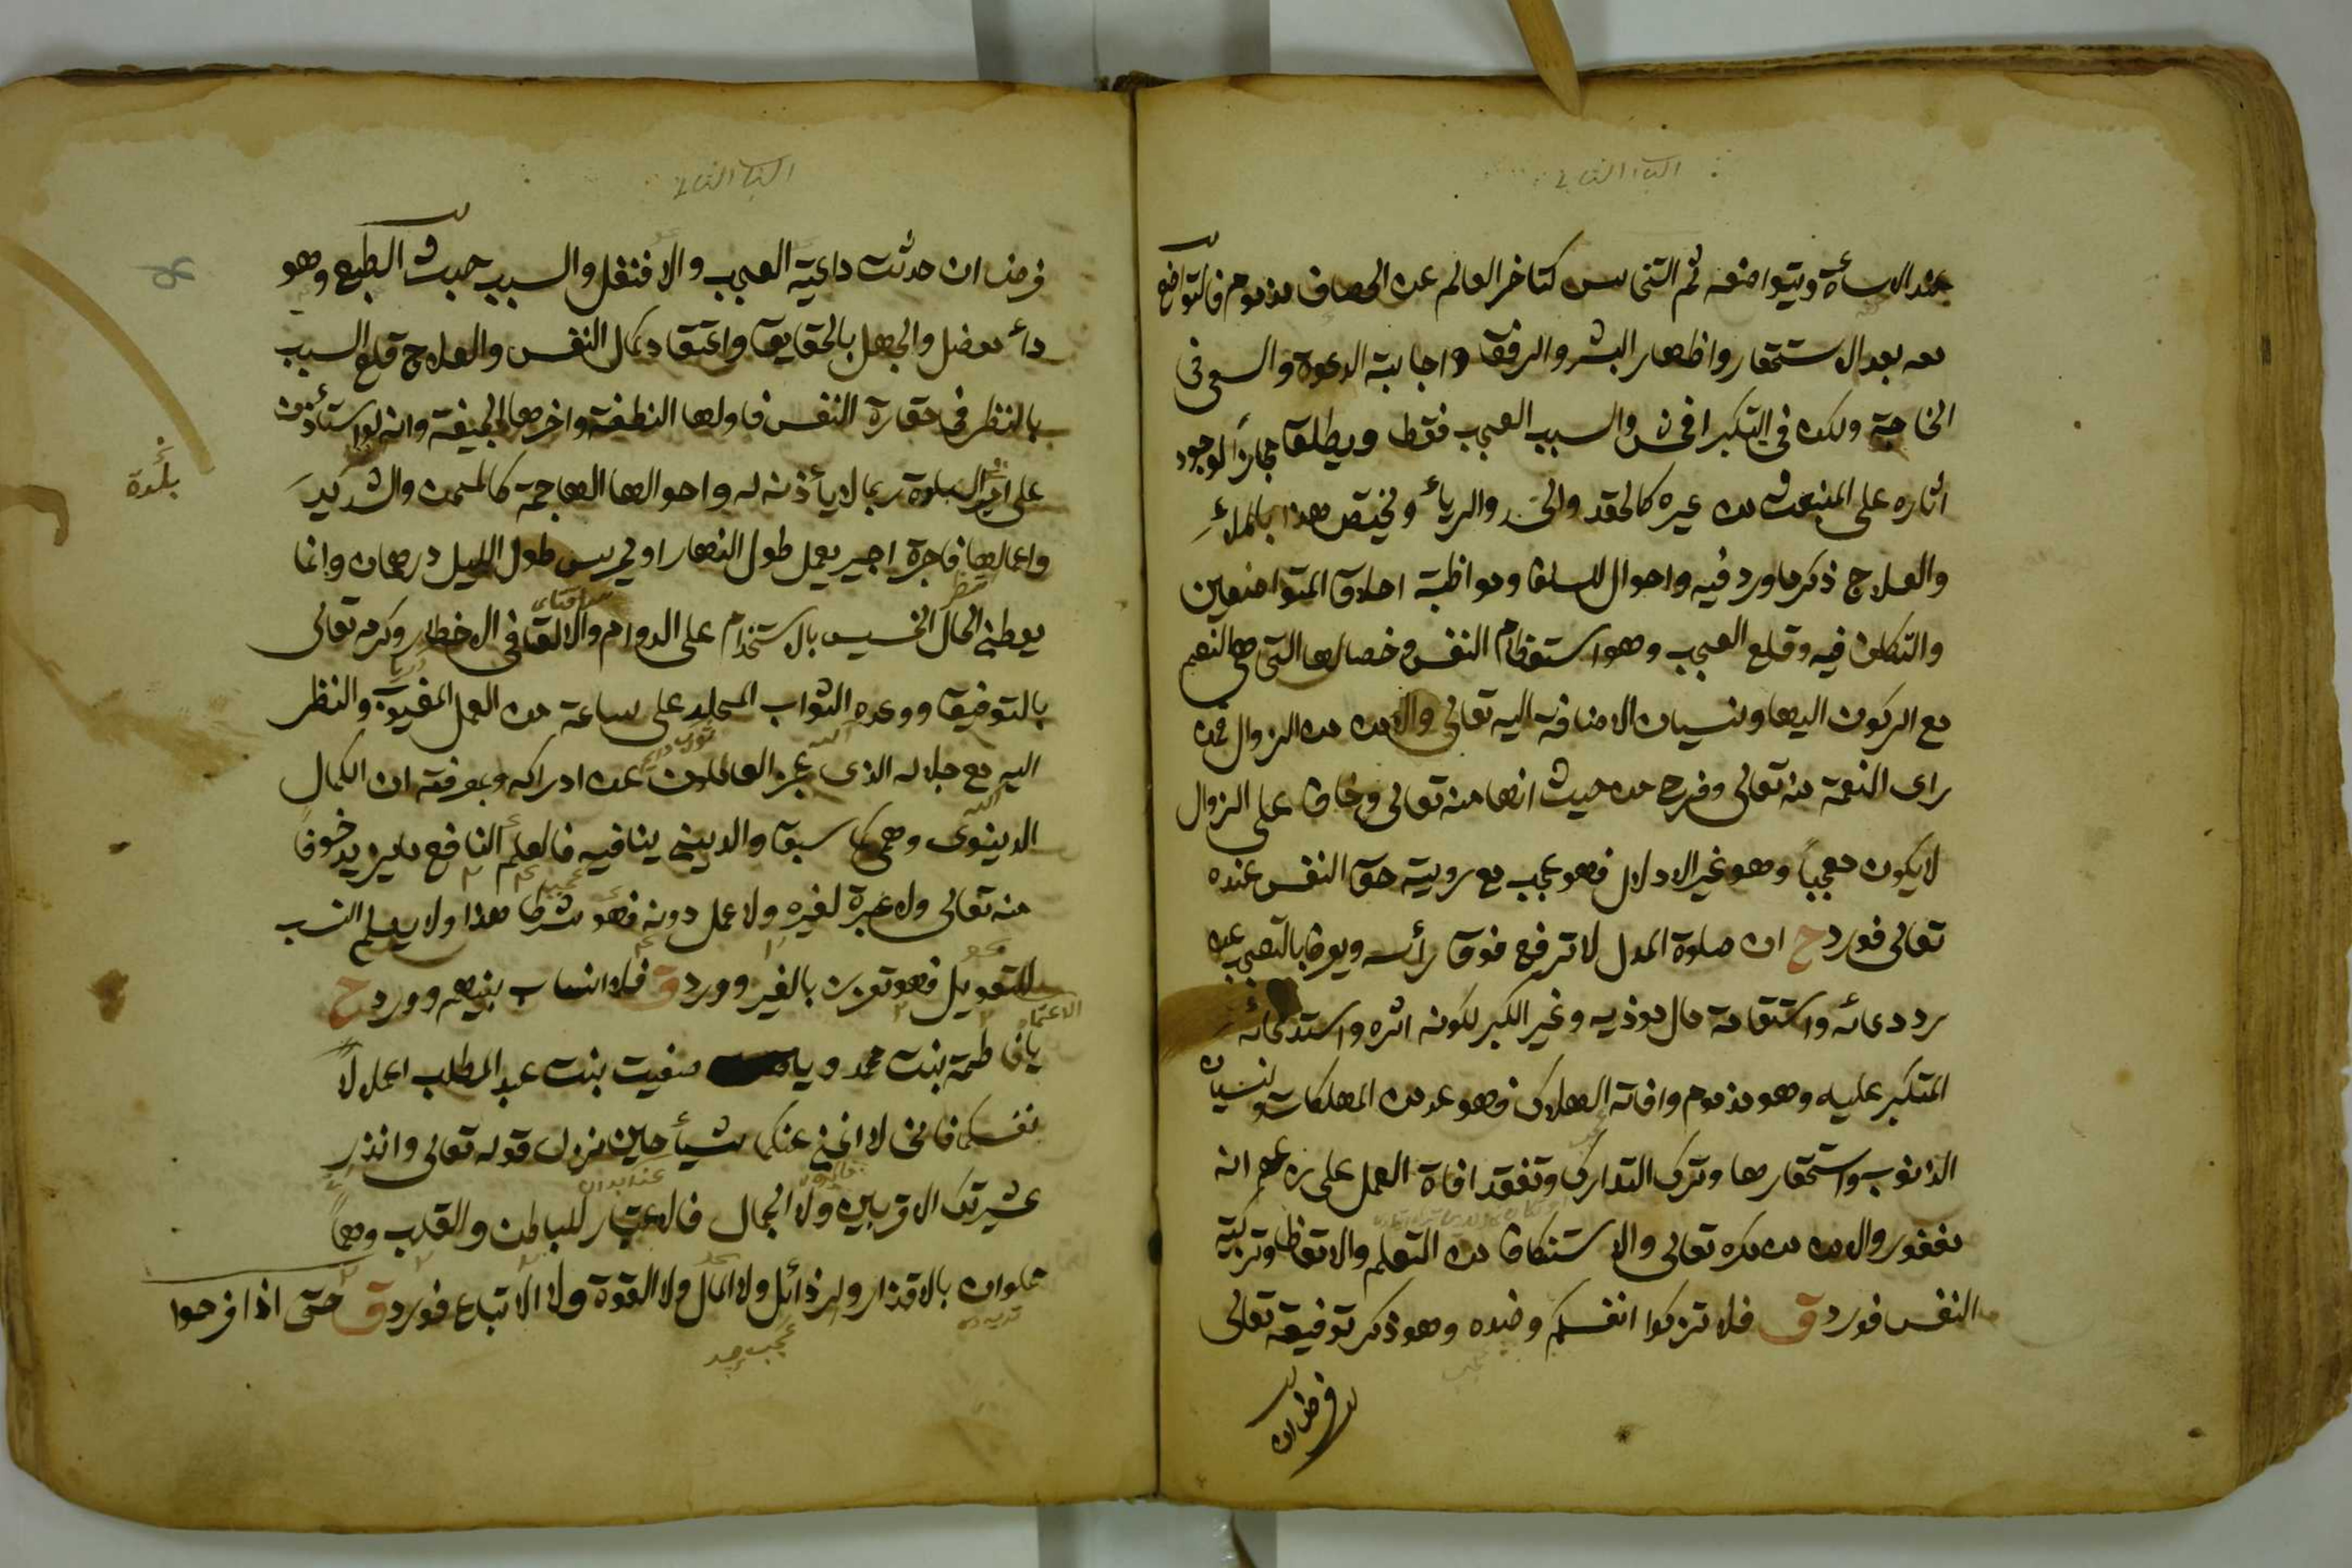 عند الاساءة ويتواضعه ثم التخاسس كتاخر العالم عن الخصاف مذموم فالتواضع
معه بعد الاستحقار واظهار البشر والرفق واجابة الدعوة والسعى فى
الحاجة ولكن فى التكبر افحش والسبب العجب فقط ويطلق مجازا لوجود
اثاره على المنبعث من غيره كالحقد والحسد والرياء ويختص هذا بالملاء
والعلاج ذكر ما ورد فيه واحوال السلف ومواظبة اخلاق المتواضعين
والتكلف فيه وقلع العجب وهو استعظام النفس وخصالها التى هى النعم
مع الركون اليها ونسيان الاضافة اليه تعالى والامن من الزوال فمن
راى النعمة منه تعالى وفرح من حيث انها منه تعالى وخاف على الزوال
لا يكون معجبا وهو غير الادلال فهو عجب مع روية حق النفس عنده
تعالى فورد ح ان صلوة المدل لا ترفع فوق رأسه ويعرف بالتعجب عن
رد دعائه واستقامة حال موذيه وغير الكبر لكونه اثره واستدعائه
المتكبر عليه وهو مذموم وافاته الهلاك فهو عد من المهلكات ونسيان
الذنوب واستحقارها وترك التدارك وتفقد افات العمل على زعم انه
مغفور والامن من مكره تعالى والاستنكاف من التعلم والاتعاظ وتزكية
النفس فورد ق فلا تزكوا انفسكم وضده وهو ذكر توفيقه تعالى
فرض ان
فرض ان حدثت داعية العجب والا فنفل والسبب خبث الطبع وهو
داء معضل والجهل بالحقايق واعتقاد كمال النفس والعلاج قلع السبب
بالنظر فى حقارة النفس فاولها النطفة واخرها الجيفة وانه لو استأذن
على امير البلدة ربما لا يأذن له واحوالها الهاجمة كالمسمن والشديد
بلدة
واعمالها فاجرة اجير يعمل طول النهار او يحرس طول الليل درهمان وانما
يعطى الحال الخسيس بالاستخدام على الدوام والالقا فى الاخطار وكرمه تعالى
بالتوفيق ووعده الثواب المخلد على ساعة من العمل المغيوبة والنظر
اليه مع جلاله الذى عجز العاملون عن ادراكه ومعرفته ان الكمال
الدينوى وهمى كما سبق والدينى ينافيه فالعلم النافع ما يزيد خوفا
منه تعالى ولا عبرة لغيره ولا عمل دونه فهو شرط هذا ولا يعلم النسب
للتعويل فهو تعزز بالغير وورد ق فلا انساب بينهم وورد ح
الاعتماد
يا فاطمة بنت محمد ويا صفيت بنت عبد المطلب اعملا لا
نفسكما فانى لا اغنى عنكما شيأ حين نزل قوله تعالى وانذر
عشيرتك الاقربين ولا الجمال فالاعتبار للباطن والقلب وهما
مملوان بالاقذار والرذائل ولا المال ولا القوة ولا الاتباع فورد ق حتى اذا فرحوا